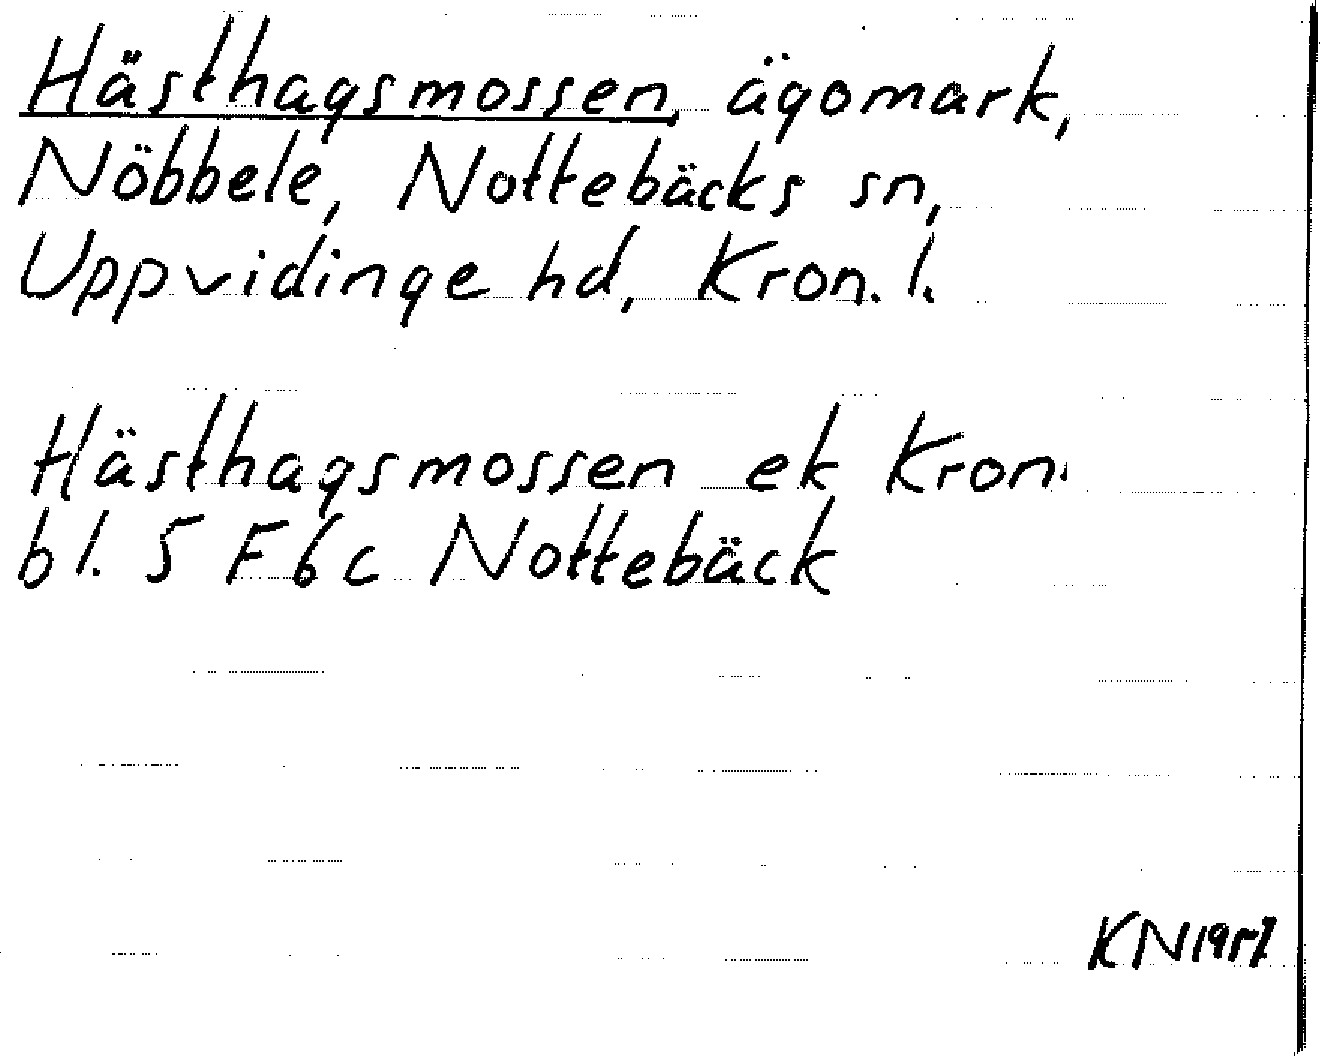 Hästhagsmossen, ägomark,
Nöbbele, Nottebäcks sn,
Uppvidinge hd, Kron. l.
Hästhagsmossen ek Kron.
bl. 5 F 6 c Nottebäck
KN 1957